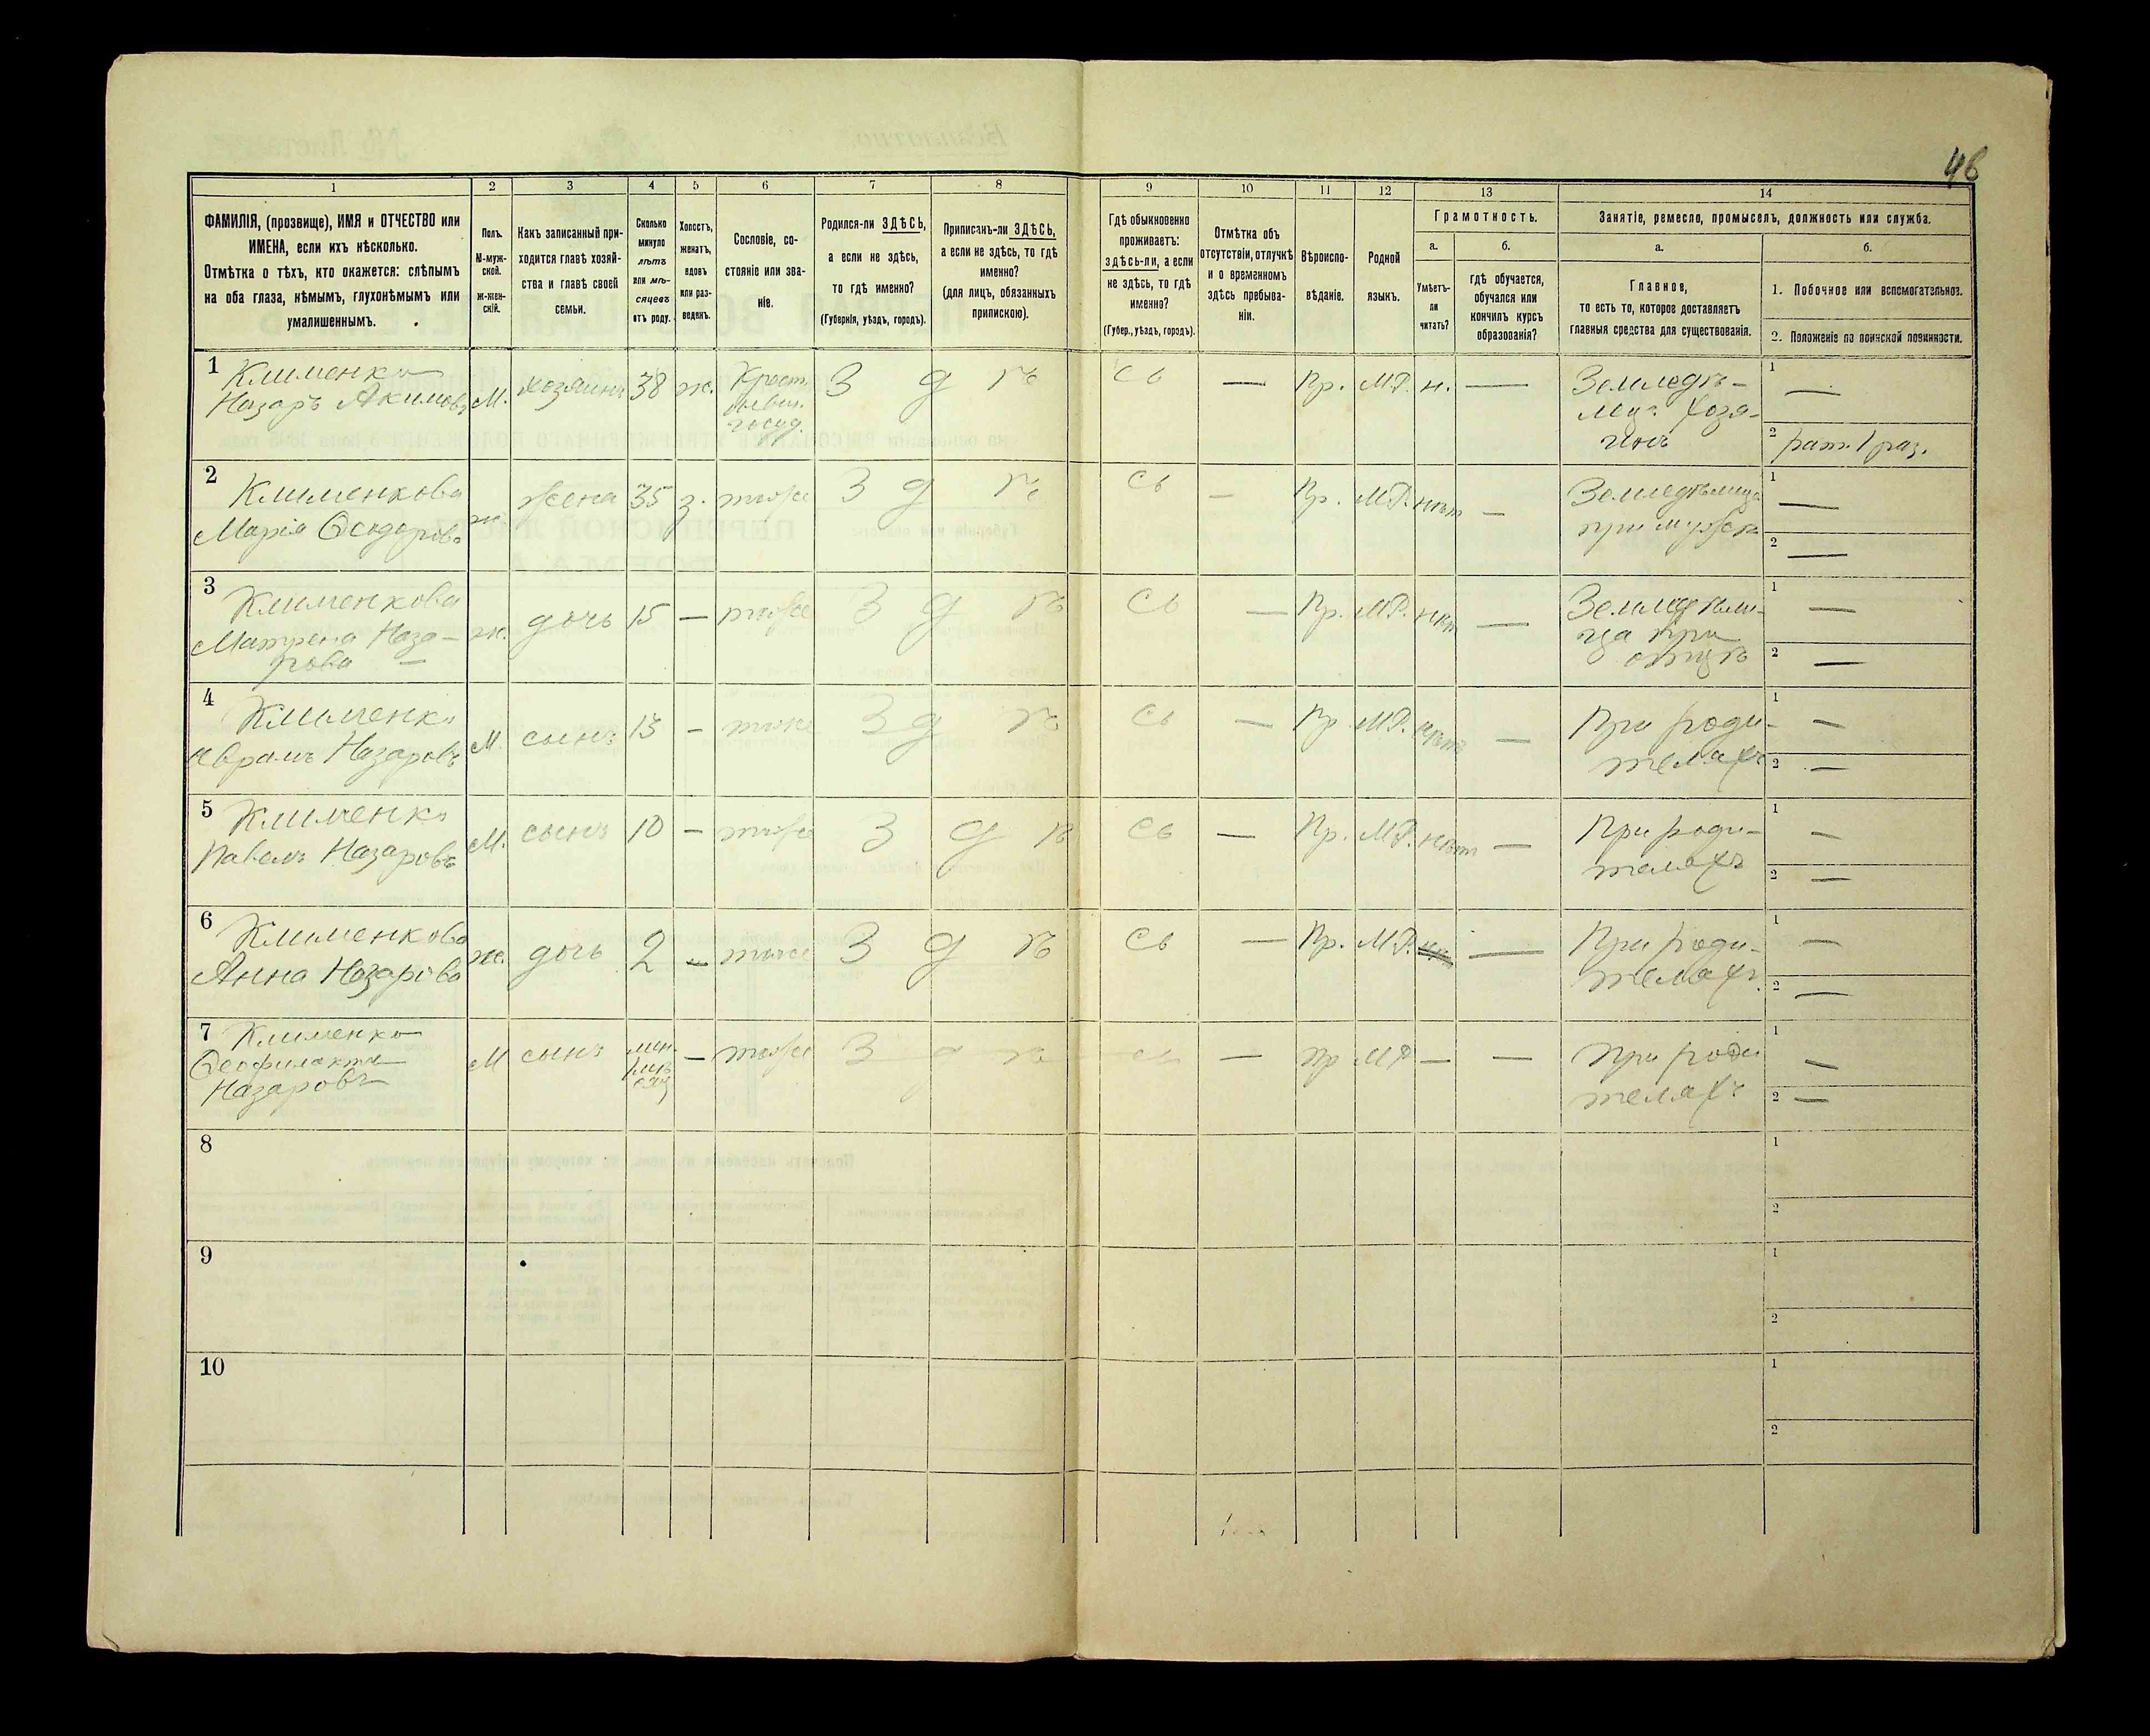 46
1 2 3 4 5 6 7 8 9 10 11 12 13 14
ФАМИЛІЯ, (прозвище), ИМЯ и ОТЧЕСТВО или
ИМЕНА, если ихъ нѣсколько.
Отмѣтка о тѣхъ, кто окажется: слѣпымъ
на оба глаза, нѣмымъ, глухонѣмымъ или
умалишеннымъ.
Полъ.
М-муж-
ской.
Ж-жен-
скій.
Какъ записанный при-
ходится главѣ хозяй-
ства и главѣ своей
семьи.
Сколько
минуло
лѣтъ
или мѣ-
сяцевъ
отъ роду.
Холостъ,
женатъ,
вдовъ
или раз-
веденъ.
Сословіе, со-
стояніе или зва-
ніе.
Родился-ли ЗДѢСЬ,
а если не здѣсь,
то гдѣ именно?
(Губернія, уѣздъ, городъ).
Приписанъ-ли ЗДѢСЬ,
а если не здѣсь, то гдѣ
именно?
(для лицъ, обязанныхъ
припискою).
Гдѣ обыкновенно
проживаетъ:
здѣсь-ли, а если
не здѣсь, то гдѣ
именно?
(Губер., уѣздъ, городъ).
Отмѣтка объ
отсутствіи, отлучкѣ
и о временномъ
здѣсь пребыва-
ніи.
Вѣроиспо-
вѣданіе.
Родной
языкъ.
Грамотность.
а.
Умѣетъ-
ли
читать?
б.
гдѣ обучается,
обучался или
кончилъ курсъ
образованія?
Занятіе, ремесло, промыселъ, должность или служба.
а.
Главное,
то есть то, которое доставляетъ
главныя средства для существованія.
б.
1. Побочное или вспомогательное.
2. Положеніе по воинской повинности.
1 Клименко
Назаръ Акимовъ М. хозяинъ 38 ж. Крест.
бывш.
госуд.
З д ѣ сь — Пр. М.Р. н. —
Земледѣ-
лец. хозя-
инъ
1 —
2 рат. 1 раз.
2 Клименкова
Марія Ѳедорова ж. жена 35 з. тоже З д ѣ сь — Пр. М.Р. нѣт —
Земледѣлица
при мужѣ
1 —
2 —
3 Клименкова
Матрена Наза-
рова —
ж. дочь 15 — тоже З д ѣ сь — Пр. М.Р. нѣт —
Земледѣли-
ца при
отцѣ
1 —
2 —
4 Клименко
Аврамъ Назаровъ М. сынъ 13 — тоже З д ѣ сь — Пр М.Р. нѣтъ —
При роди-
теляхъ
1 —
2 —
5 Клименко
Павелъ Назаровъ М. сынъ 10 — тоже З д ѣ сь — Пр. М.Р. нѣт —
При роди-
теляхъ
1 —
2 —
6 Клименкова
Анна Назарова ж. дочь 2 — тоже З д ѣ сь — Пр. М.Р. —
При роди-
теляхъ.
1 —
2 —
7 Клименко
Ѳеофилактъ
Назаровъ
М сынъ мен.
— тоже З д ѣ сь — Пр М.Р — —
При роди
теляхъ
1 —
2 —
8
1
2
9
1
2
10
1
2